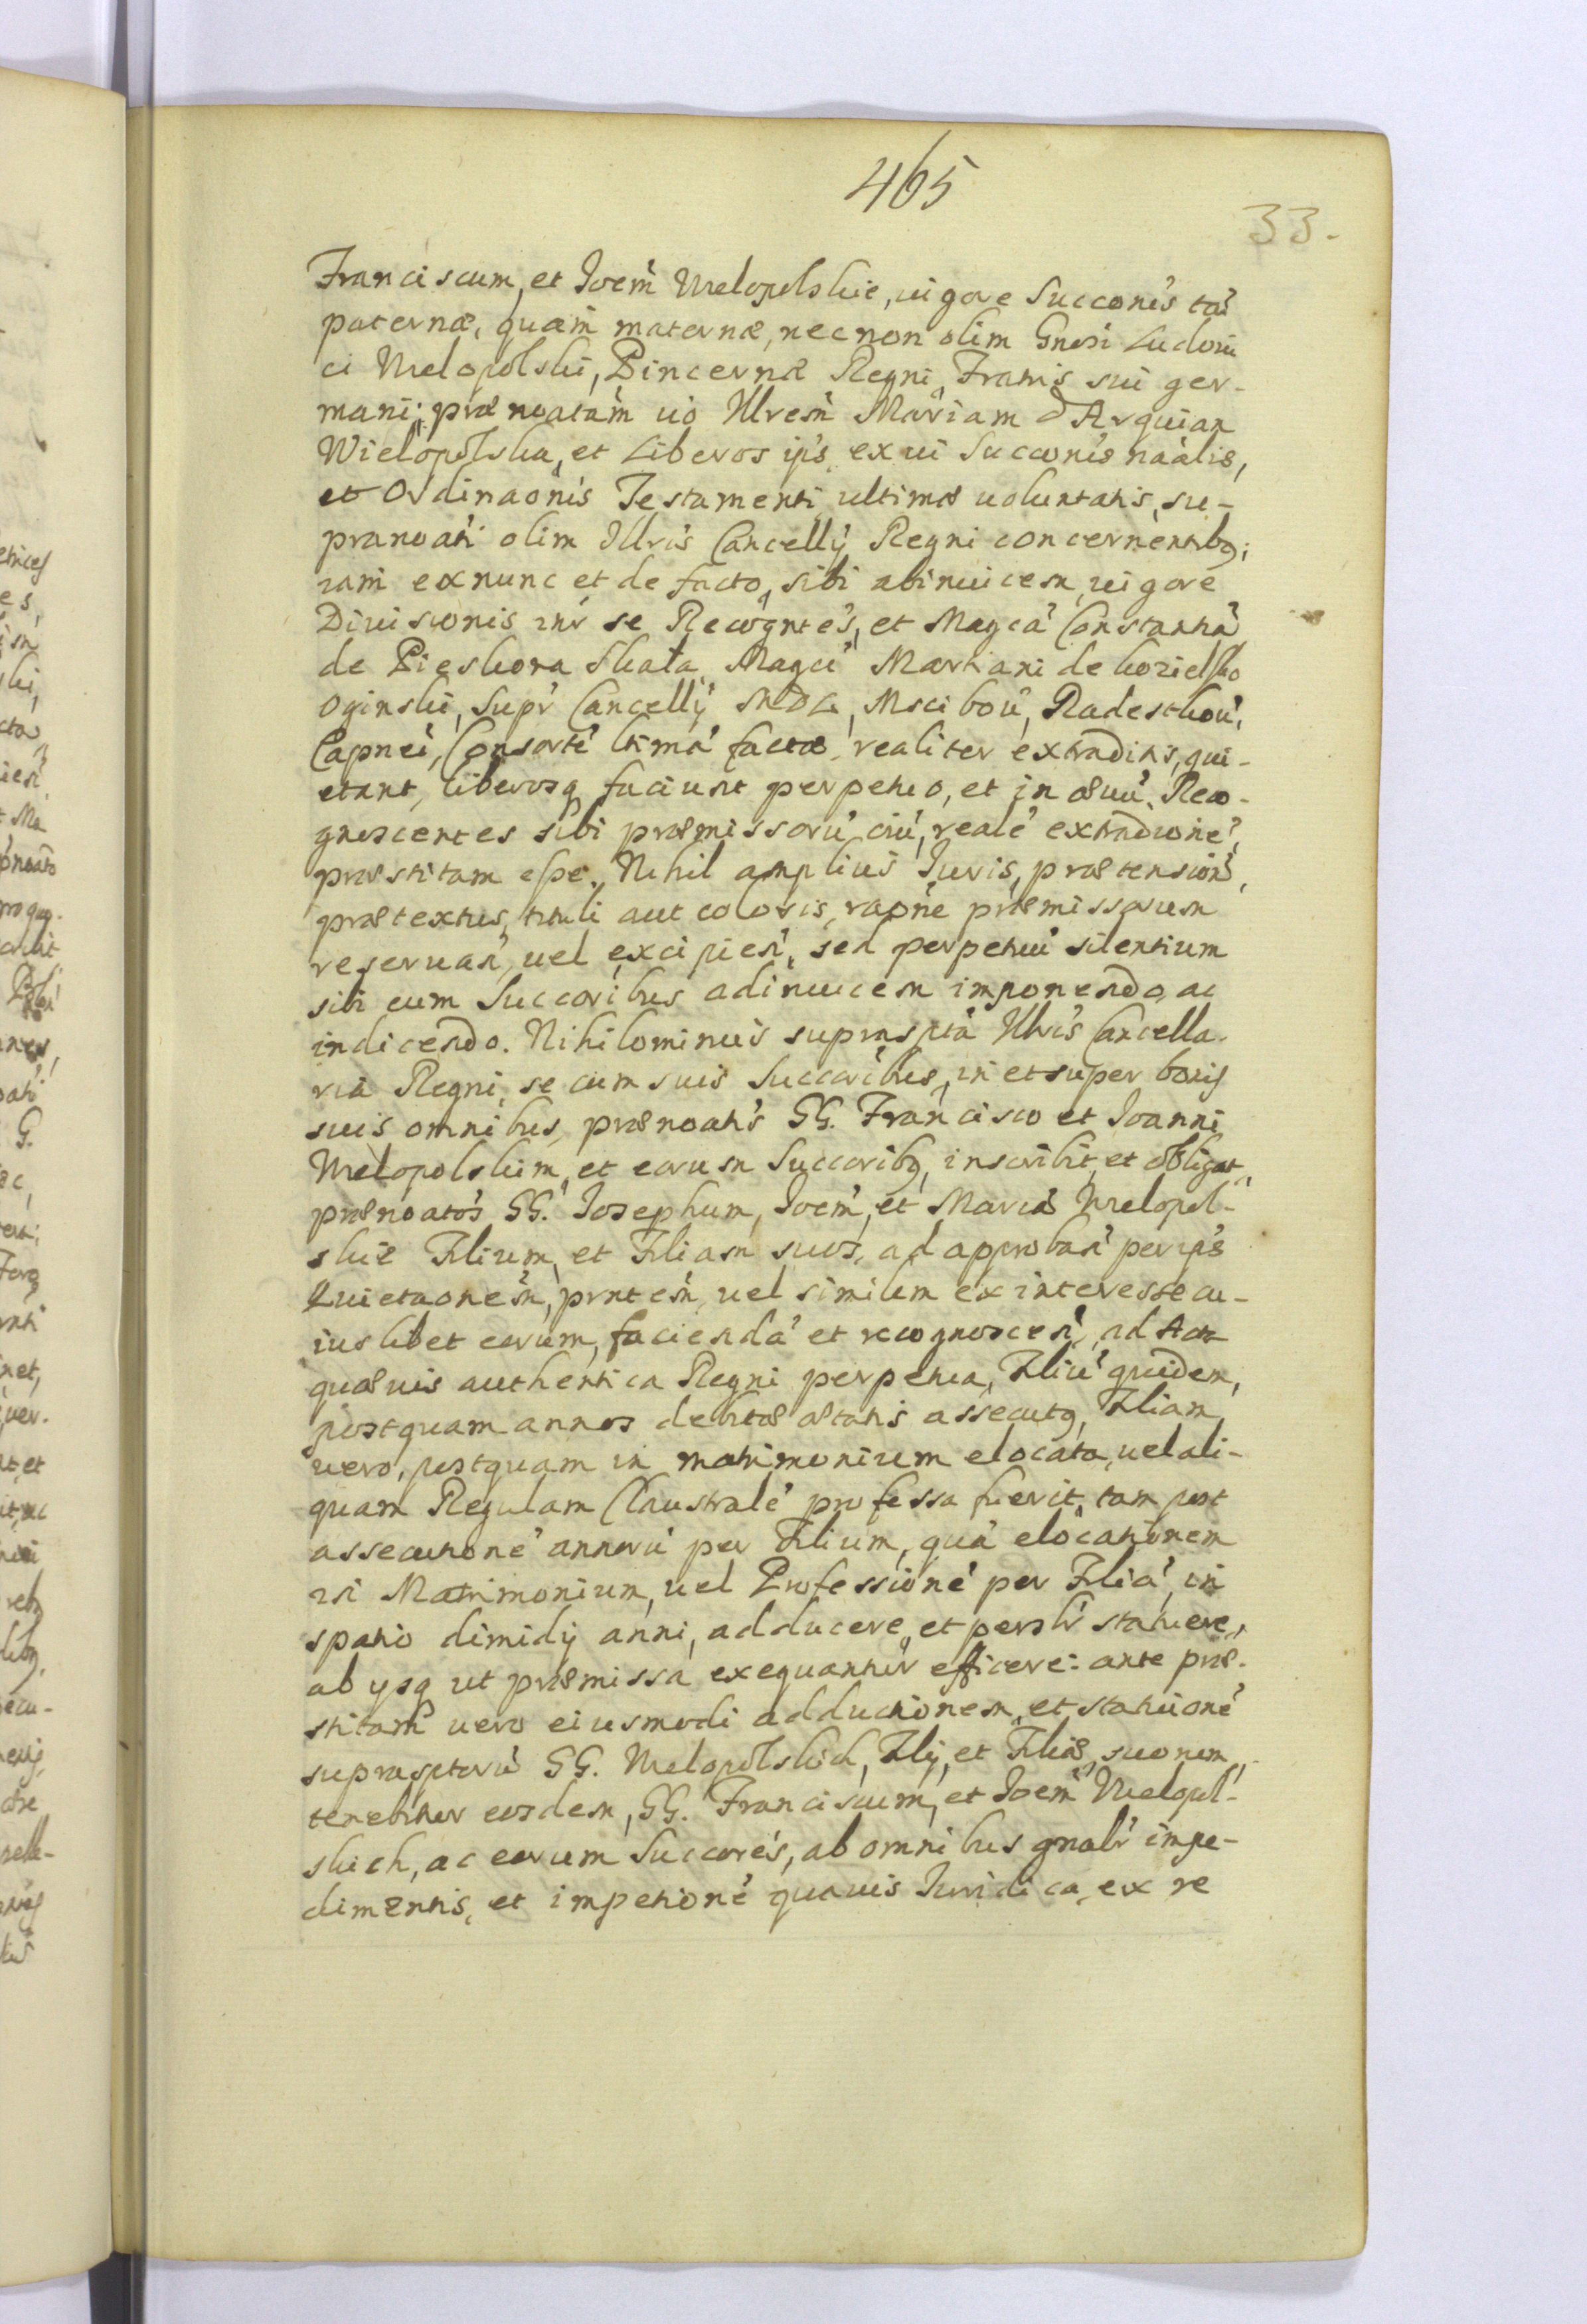 465
33.
Franciscum, et Joem̀ Wielopolskie, uigore Succonis tá
paternæ, quam̀ maternæ, necnon olim Gnosi Ludoui
ci Wielopolski, Pincernæ Regni, Fratris sui ger-
mani; prænoatam̀ uo Illrem̀ Mariam d Arquian
Wielopolska, et Liberos ips̀ ex ui Succonis naalis,
et Ordinaonis Testamenti ultimæ uoluntatis, su-
pranoati olim Illris Cancellÿ Regni concernentibq;
iam exnunc et de facto, sibi abinuicem, uigore
Diuisionis inr̀ se Recogntes̀, et Magcá Constantiá
de Pieskora Skała, Magci Martiani de Kozielsko
Oginski, Supr̀ Cancellÿ MDL, Mscibou, Radeschou,
Capnei, Consorté ltimá factæ, realiter extraditis, qui-
etant, liberosq faciunt perpetuo, et in æuú. Reco-
gnoscentes sibi præmissorú oiú, realé extradicioné,
præstitam esse. Nihil amplius Juris, prætensioní,
prætextus, tituli aut coloris, raone præmissorum
reseruań, uel excipień, sed perpetuú silentium
sibi cum Succoribus adinuicem imponendo, ac
indicendo. Nihilominus supraspta Illris Cancella-
ria Regni, se cum suis Succoribus, in et super bonis
suis omnibus, prænoatis GG. Francisco et Joanni
Wielopolskim, et eorum Succoribq, inscribit, et obligat,
prænoatos GG. Josephum, Joem̀, et Mariá Wielopol-
skie Filium, et Filiam suos, ad approbań per ips̀
Quietaonem̀, prntem̀, uel similem ex interesse cu-
iuslibet eorum, faciendá et recognosceń, ad Acta
quæuis authentica Regni perpetua, Filiú quidem,
postquam annos debitæ ætatis assecutq, Filiam,
uero, postquam in matrimonium elocata, uel ali-
quam Regulam Claustralé professa fuerit, tam post
assecutioné annorú per Filium, quá elocationem
in Matrimonium, uel Professioné per Filiá, in
spatio dimidÿ anni, adducere, et persl̀r statuere,
ab ysq ut præmissa exequantur efficere: ante præ-
stitam̀ uero eiusmodi adductionem, et statuioné
supraspterú GG. Wielopolskich, Filÿ, et Filiæ, suorum,
tenebitur eosdem, GG. Franciscum, et Joem̀ Wielopol-
skich, ac eorum Succores̀, ab omnibus gnalr̀ impe-
dimentis, et impetioné quauis Juridica, ex re